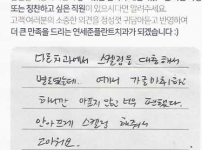 또는 칭찬하고 싶은 직원이 있으시다면 알려주세요.
고객 여러분의 소중한 의견을 정성껏 귀담아듣고 반영하여
더 큰 만족을 드리는 연세준플란트치과가 되겠습니다 :)
다른치과에서 스켈링을 대충해서
별로였는데... 여기서 가글마취하고
하니깐 아프지 않고 너무 편했다.
안아프게 스켈링 해줘서
고마워요..